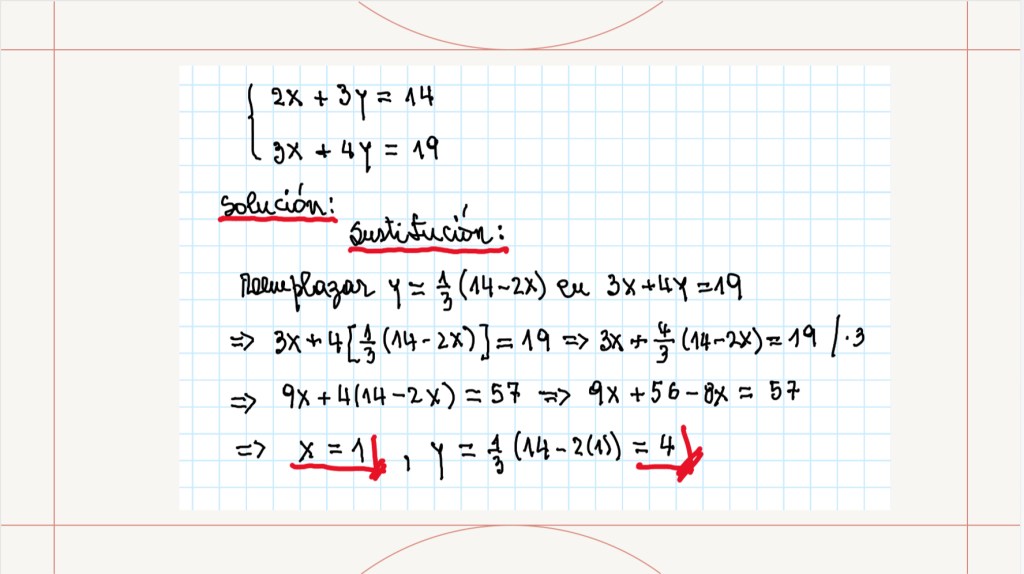 2x + 3y = 14
3x + 4y = 19
Solución:
Sustitución:
Reemplazar y = 1/3 (14-2x) en 3x+4y = 19
=> 3x+4[1/3 (14-2x)] = 19 => 3x + 4/3 (14-2x) = 19 /·3
=> 9x+4(14-2x) = 57 => 9x+56-8x = 57
=> x = 1, y = 1/3 (14-2(1)) = 4